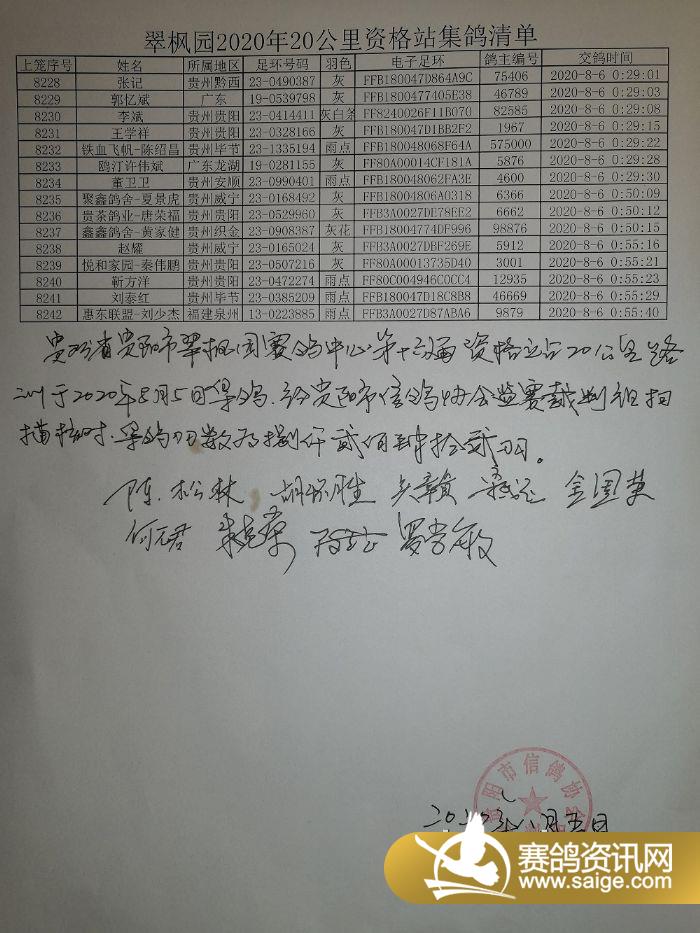 翠枫园2020年20公里资格站集鸽清单
上笼序号 姓名 所属地区 足环号码 羽色 电子足环 鸽主编号 交鸽时间
8228 张记 贵州黔西 23-0490387 灰 FFB180047D864A9C 75406 2020-8-6 0:29:01
8229 郭忆斌 广东 19-0539798 灰 FFB1800477405E38 46789 2020-8-6 0:29:03
8230 李斌 贵州贵阳 23-0414411 灰白条 FF8240026F11B070 82585 2020-8-6 0:29:08
8231 王学祥 贵州贵阳 23-0328166 灰 FFB180047D1BB2F2 1967 2020-8-6 0:29:15
8232 铁血飞帆-陈绍昌 贵州毕节 23-1335194 雨点 FFB180048068F64A 575000 2020-8-6 0:29:22
8233 鸥汀许伟斌 广东龙湖 19-0281155 灰 FF80A00014CF181A 5876 2020-8-6 0:29:28
8234 董卫卫 贵州安顺 23-0990401 雨点 FFB180048062FA3E 4600 2020-8-6 0:29:30
8235 聚鑫鸽舍-夏景虎 贵州威宁 23-0168492 灰 FFB18004806A0318 6366 2020-8-6 0:50:09
8236 贵茶鸽业-唐荣福 贵州贵阳 23-0529960 灰 FFB3A0027DE78EE2 6662 2020-8-6 0:50:12
8237 鑫鑫鸽舍-黄家健 贵州织金 23-0908387 灰花 FFB1800474DF996 98876 2020-8-6 0:50:15
8238 赵耀 贵州威宁 23-0165024 灰 FFB3A0027DBF269E 5912 2020-8-6 0:55:16
8239 悦和家园-秦伟鹏 贵州贵阳 23-0507216 灰 FF80A0013735D40 3001 2020-8-6 0:55:21
8240 靳方洋 贵州贵阳 23-0472274 雨点 FF80C004946C0CC4 12935 2020-8-6 0:55:23
8241 刘泰红 贵州毕节 23-0385209 雨点 FFB180047D18C8B8 46669 2020-8-6 0:55:29
8242 惠东联盟-刘少杰 福建泉州 13-0223885 雨点 FFB3A0027D87ABA6 9879 2020-8-6 0:55:40
贵州省贵阳市翠枫园赛鸽中心第十六届资格站20公里路
训于2020年8月5日集鸽.经贵阳市信鸽协会监赛裁判组扫
描核对.集鸽羽数为捌仟贰佰肆拾贰羽。
陈松林 胡 胜 金国英
何元君 罗 敏
贵阳市信鸽协会
八月五日
赛鸽资讯网
www.saige.com